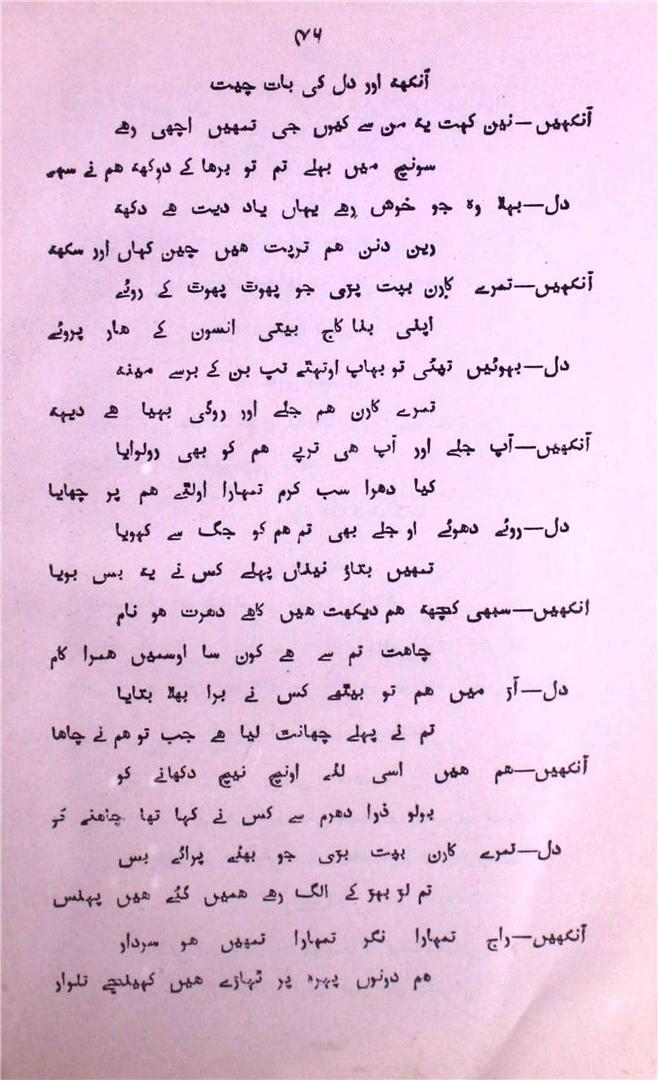 ۴۶
آنکھہ اور دل کی بات چیت
آنکھیں—نین کہت یہ من سے کیوں جی تمھیں اچھی رھے
سونچ میں پہلے تم تو برھا کے دوکھہ ھم نے سہے
دل—بھلا وہ جو خوش رھے یہاں یاد دیت ھے دکھہ
رین دنن ھم ترپت ھیں چین کہاں اور سکھہ
آنکھیں—تمرے کارن بپت پڑی جو پھوت پھوت کے روئے
اپنی بنا کاج بیتی انسون کے ھار پروئے
دل—بھوئیں تپئی تو بھاپ اوتھتے تپ بن کے برسے مینہ
تمرے کارن ھم جلے اور روگی بھیا ھے دیہہ
آنکھیں—آپ جلے اور آپ ھی ترپے ھم کو بھی رولوایا
کیا دھرا سب کرم تمھارا اولتے ھم پر چھایا
دل—روئے دھوئے او جلے بھی تم ھم کو جگ سے کھویا
تمھیں بتاؤ نیناں پہلے کس نے یہ بس بویا
انکھیں—سبھی کچھہ ھم دیکھت ھیں کاھے دھرت ھو نام
چاھت تم سے ھے کون سا اوسمیں ھمرا کام
دل—آڑ میں ھم تو بیٹھے کس نے برا بھلا بتایا
تم نے پہلے چھانت لیا ھے جب تو ھم نے چاھا
آنکھیں—ھم ھیں اسی لئے اونچ نیچ دکھانے کو
بولو ذرا دھرم سے کس نے کہا تھا چاھنے کو
دل—تمرے کارن بپت پڑی جو بھئے پرائے بس
تم لڑ بھڑ کے الگ رھے ھمیں گئے ھیں پھنس
آنکھیں—راج تمھارا نگر تمھارا تمھیں ھو سردار
ھم دونوں پہرہ پر ٹھاڑے ھیں کھینچے تلوار